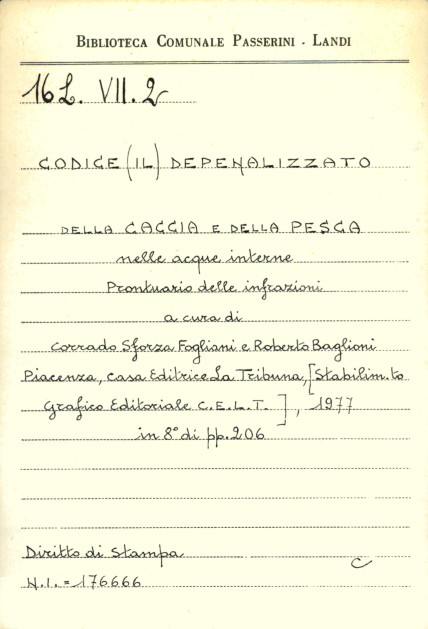 BIBLIOTECA COMUNALE PASSERINI - LANDI
16L. VII. 2
CODICE (IL) DEPENALIZZATO
DELLA CACCIA E DELLA PESCA
nelle acque interne
Prontuario delle infrazioni
a cura di
Corrado Sforza Fogliani e Roberto Baglioni
Piacenza, Casa Editrice La Tribuna, [Stabilim.to
Grafico Editoriale C.E.L.T.], 1977
in 8° di pp. 206
Diritto di Stampa
C
N.I. = 176666